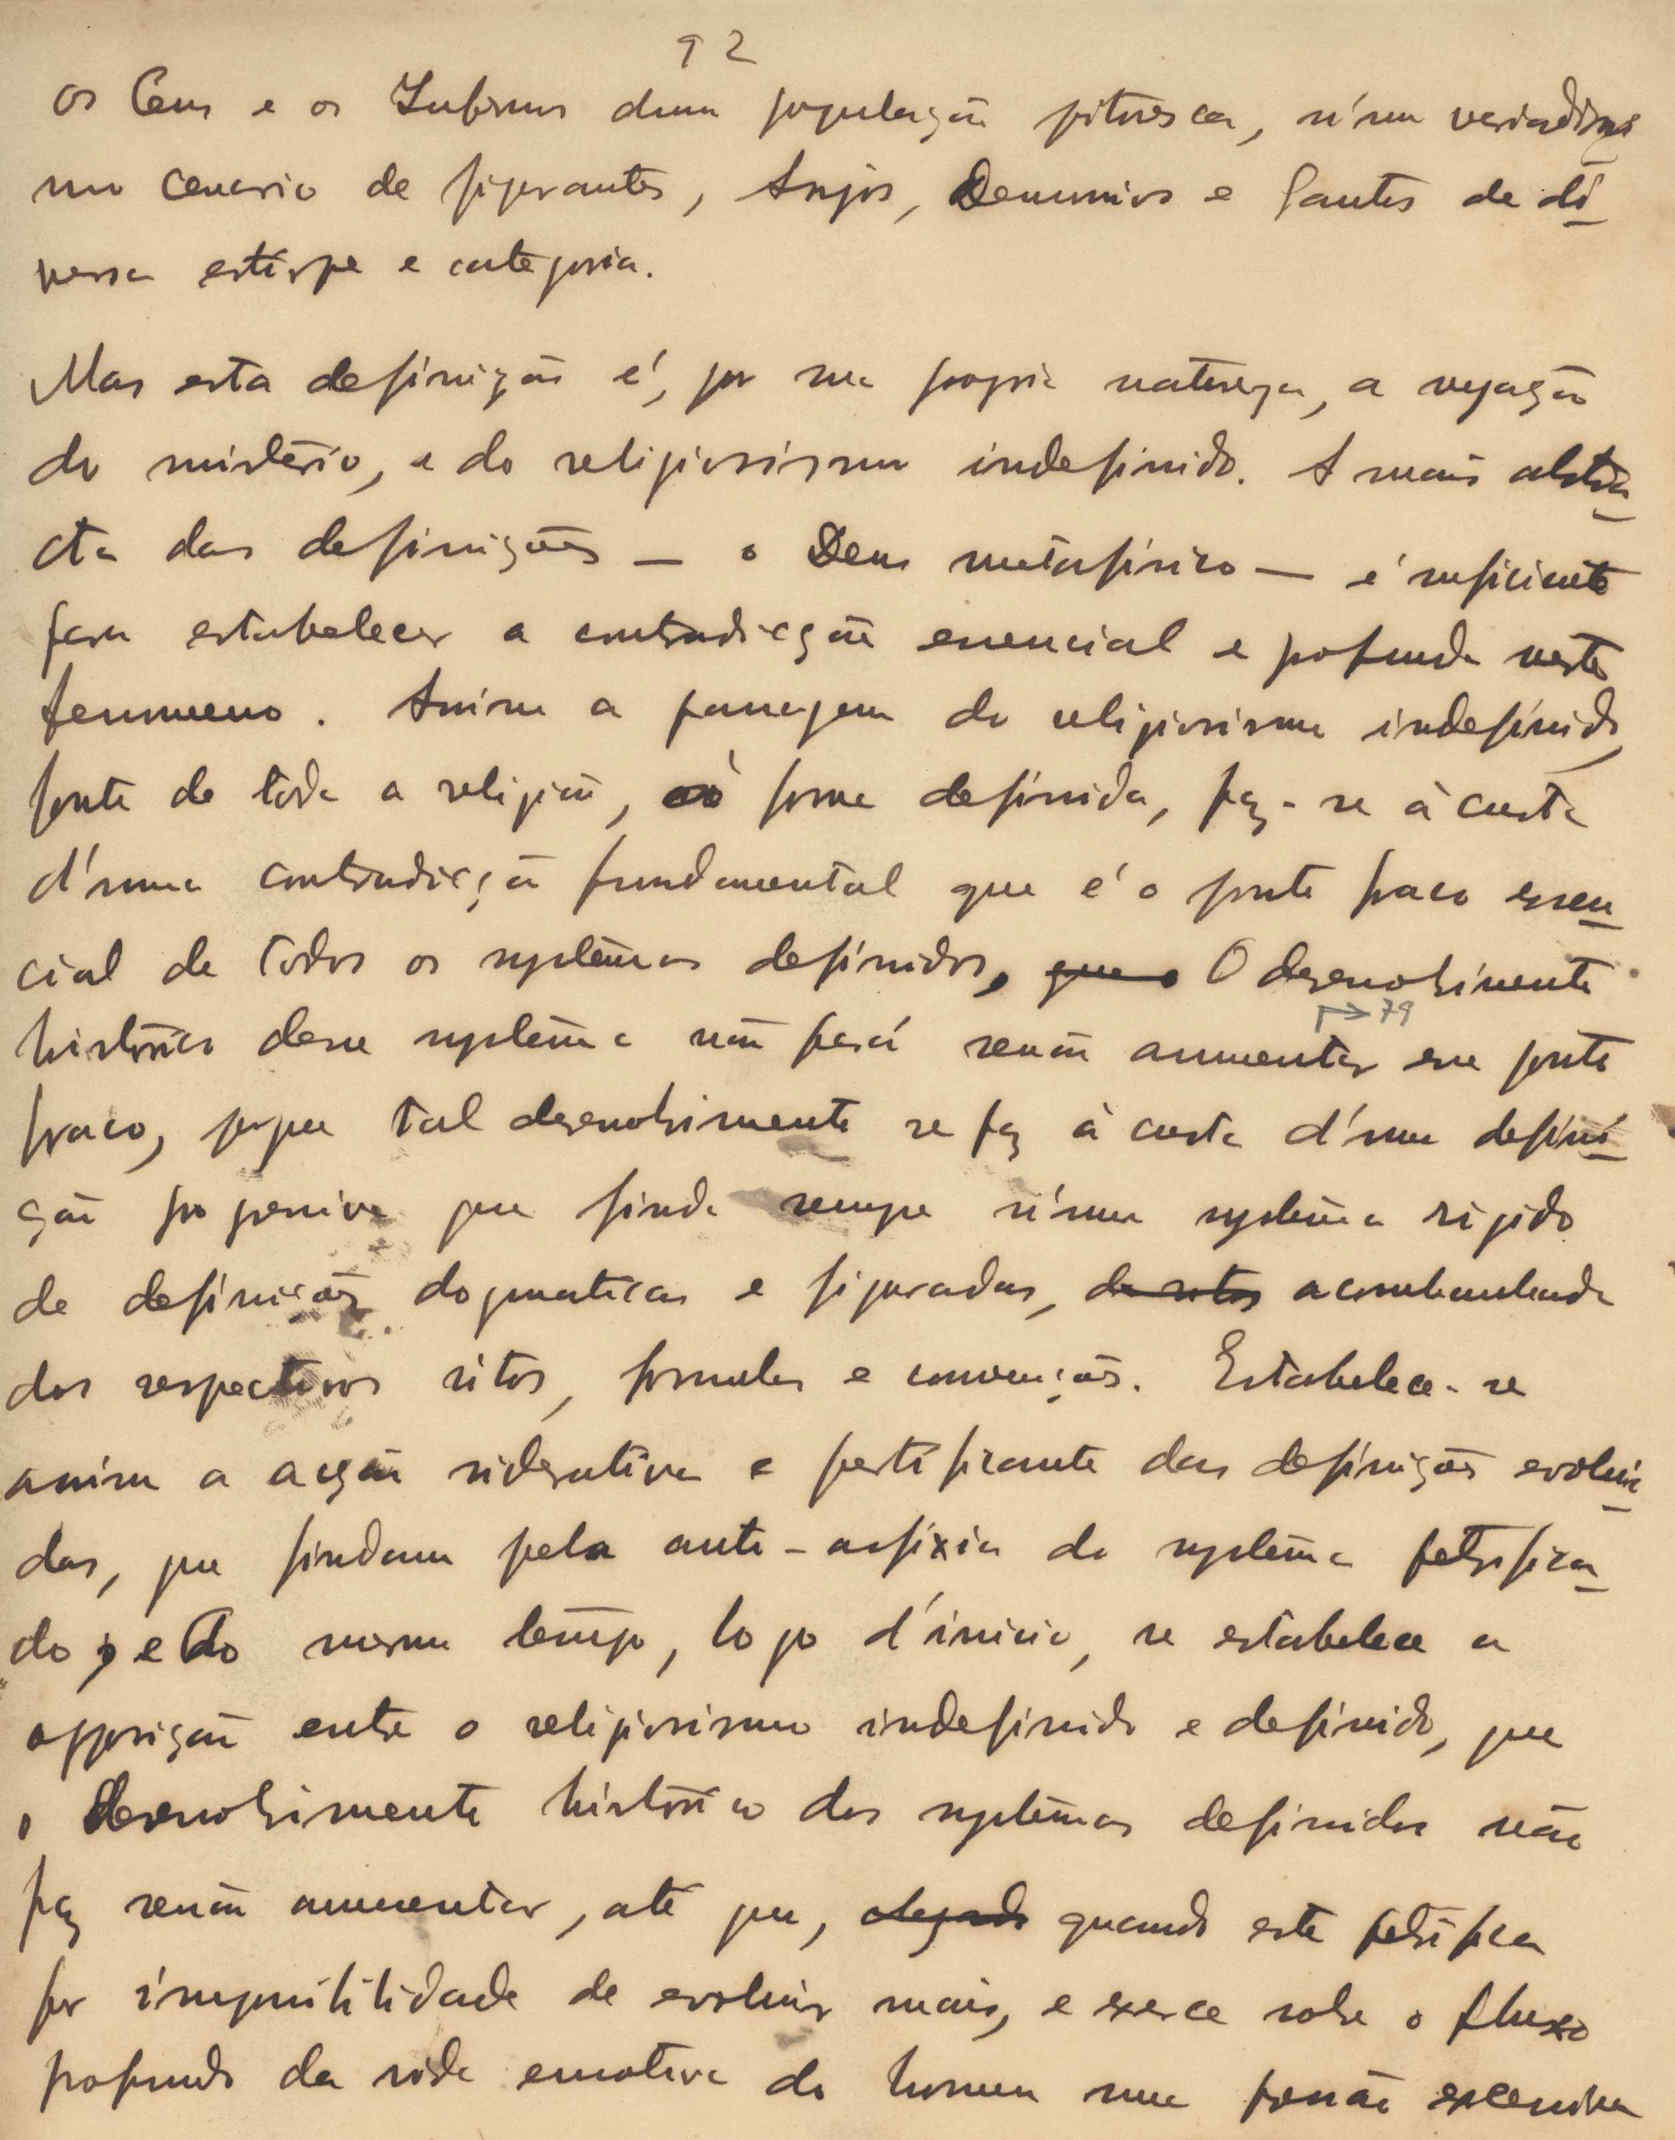 92
os Ceus e os Infernos duma população pitoresca, n'um verdadei
mo cenario de figurantes, Anjos, Demonios e Santos de di-
versa estirpe e categoria.
Mas esta definição é, por sua propria natureza, a negação
do mistério, e do religiosismo indefinido. A mais abstra-
cta das definições — o Deus metafisico — é suficiente
para estabelecer a contradicção essencial e profunda neste
fenomeno. Assim a passagem do religiosismo indefinido,
fonte de toda a religião, á forma definida, faz-se à custa
d'uma contradicção fundamental que é o ponto fraco essen-
cial de todos os systêmas definidos, que o O desenvolvimento
→ 79
histórico desse systêma não fará senão aumentar esse ponto
fraco, porque tal desenvolvimento se faz à custa d'uma defini-
ção progressiva que finda sempre n'um systêma rigido
de definições dogmaticas e figuradas, de ritos acombanhada
dos respectivos ritos, formulas e convenções. Estabelece-se
assim a acção siderativa e petrificante das definições evolui-
das, que findam pela auto-asfixia do systêma petrifica-
do; e ao mesmo tempo, logo d'inicio, se estabelece a
opposição entre o religiosismo indefinido e definido, que
o desenvolvimento histórico dos systêmas definidos não
faz senão aumentar, até que, chegado quando este petrifica
por impossibilidade de evoluir mais, e exerce sobre o fluxo
profundo da vida emotiva do homem uma pressão excessiva